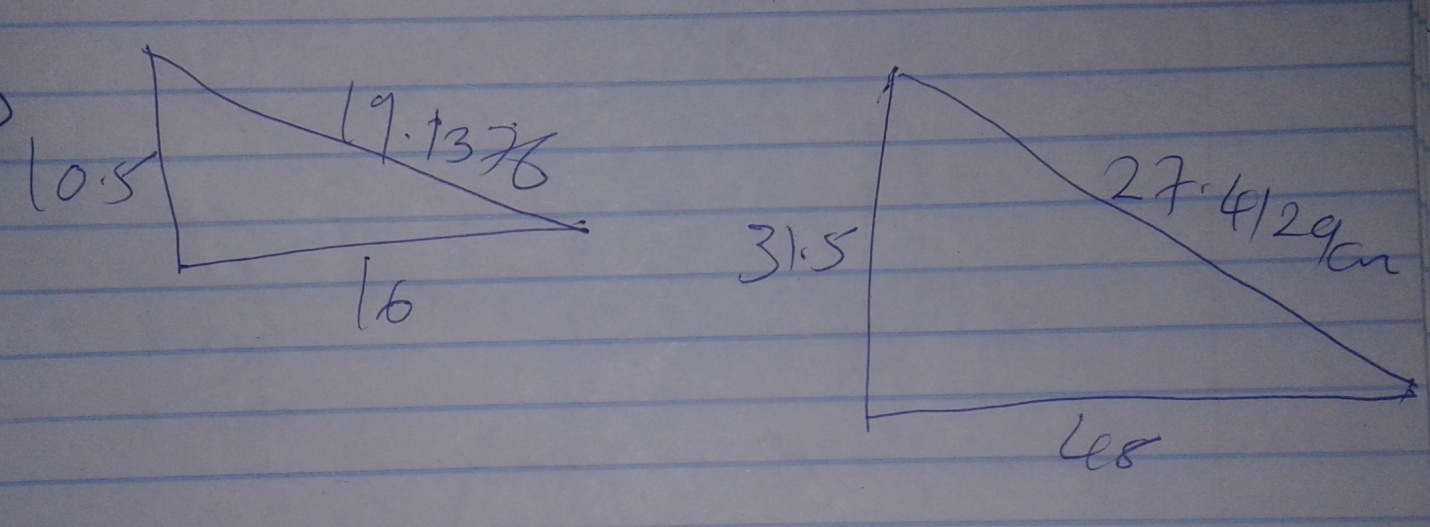 10.5
19.1376
16
31.5
27.4129cm
48